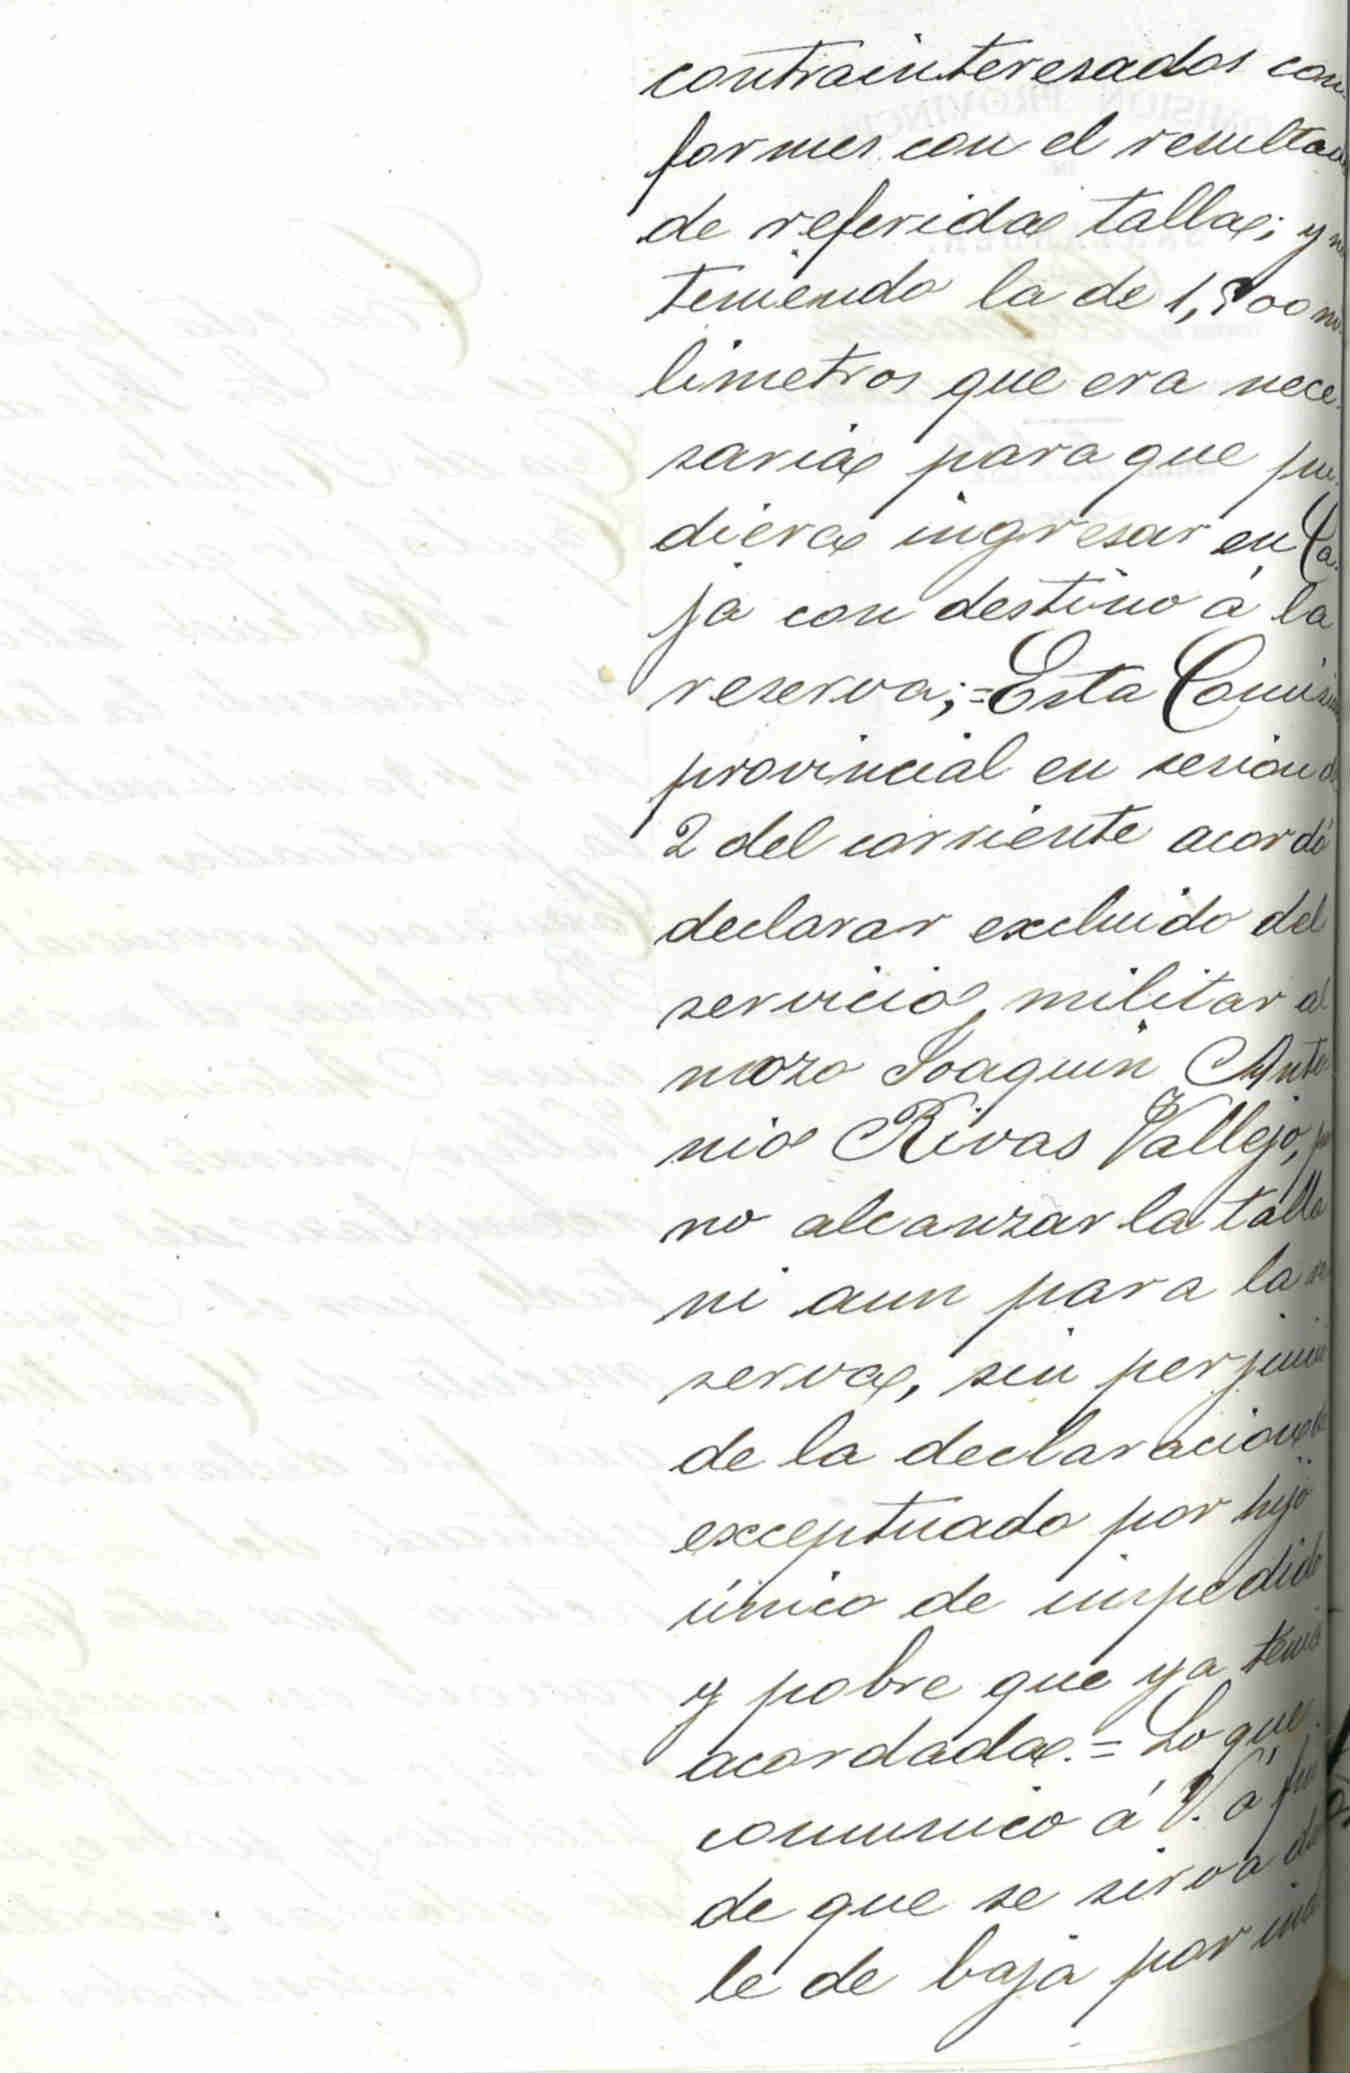 contrainteresados con-
formes con el resultado
de referida talla; y no
teniendo la de 1,500 mi-
limetros que era nece-
saria para que pu-
diera ingresar en Ca-
ja con destino á la
reserva; = Esta Comisión
provincial en sesión de
2 del corriente acordó
declarar excluido del
servicio militar al
mozo Joaquin Anto-
nio Rivas Vallejo, por
no alcanzar la talla
ni aun para la re-
serva, sin perjuicio
de la declaracion de
exceptuado por hijo
único de impedido
y pobre que ya tenia
acordada. = Lo que
comunico á V. á fin
de que se sirva dar
le de baja por